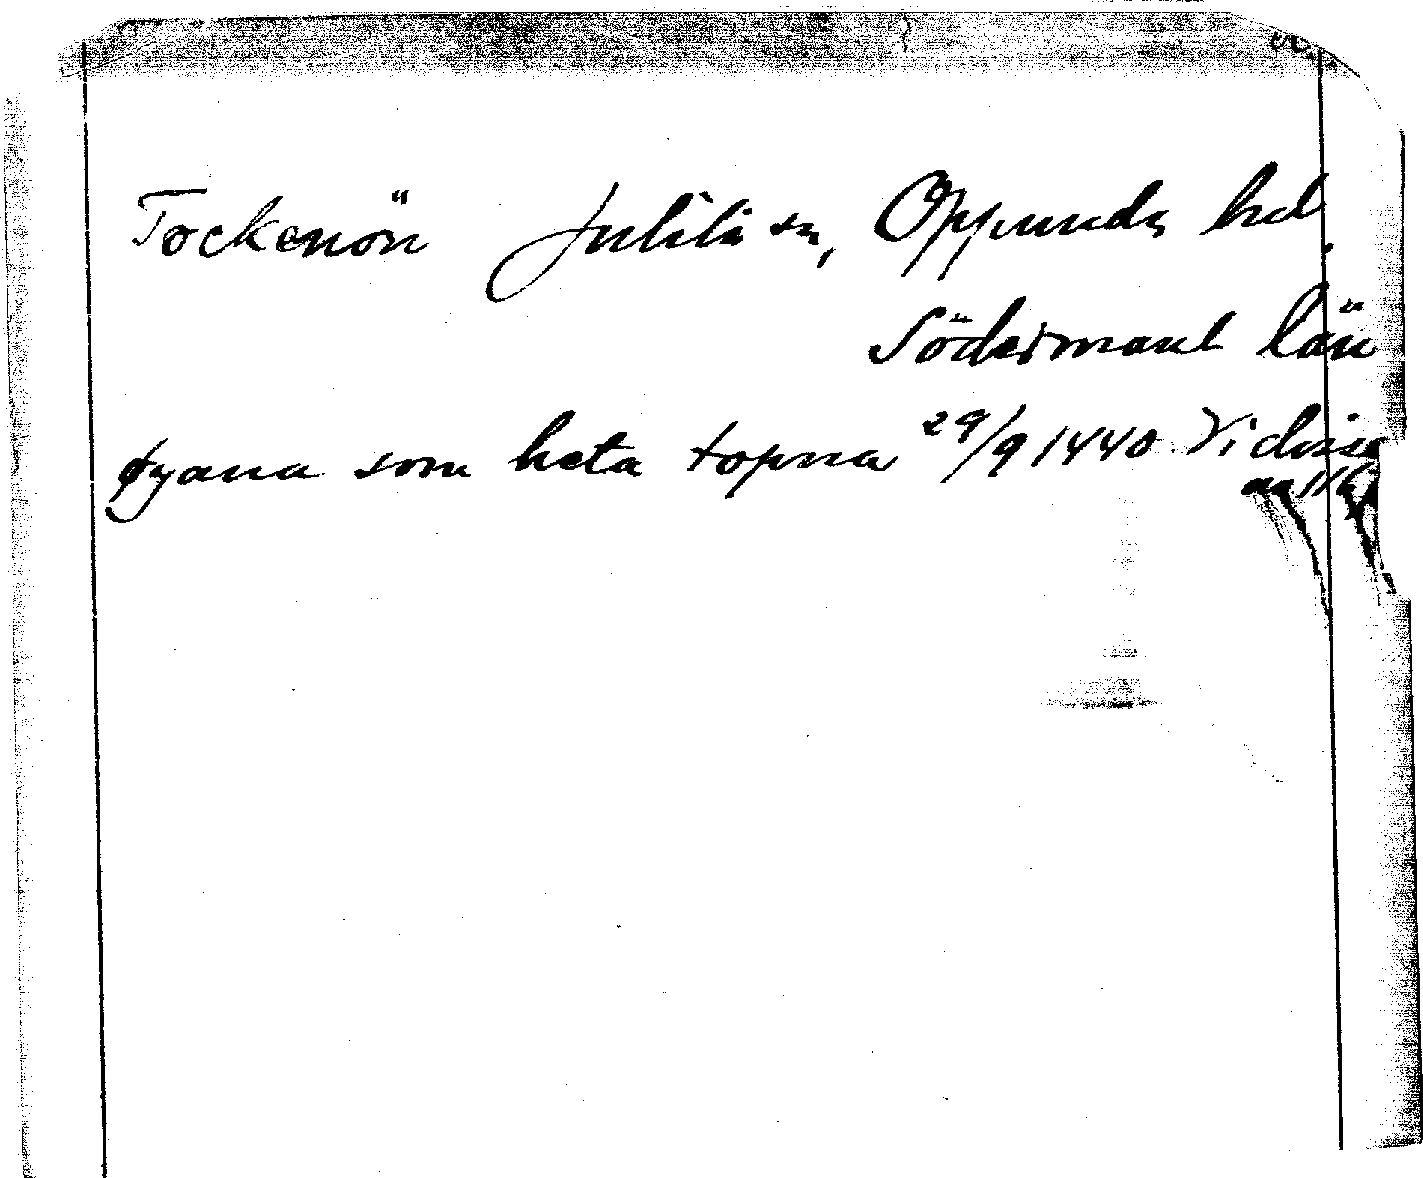 Tockenön Julita sn, Oppunda hd.
Södermanl län
øyana som heta topna 29/9 1440